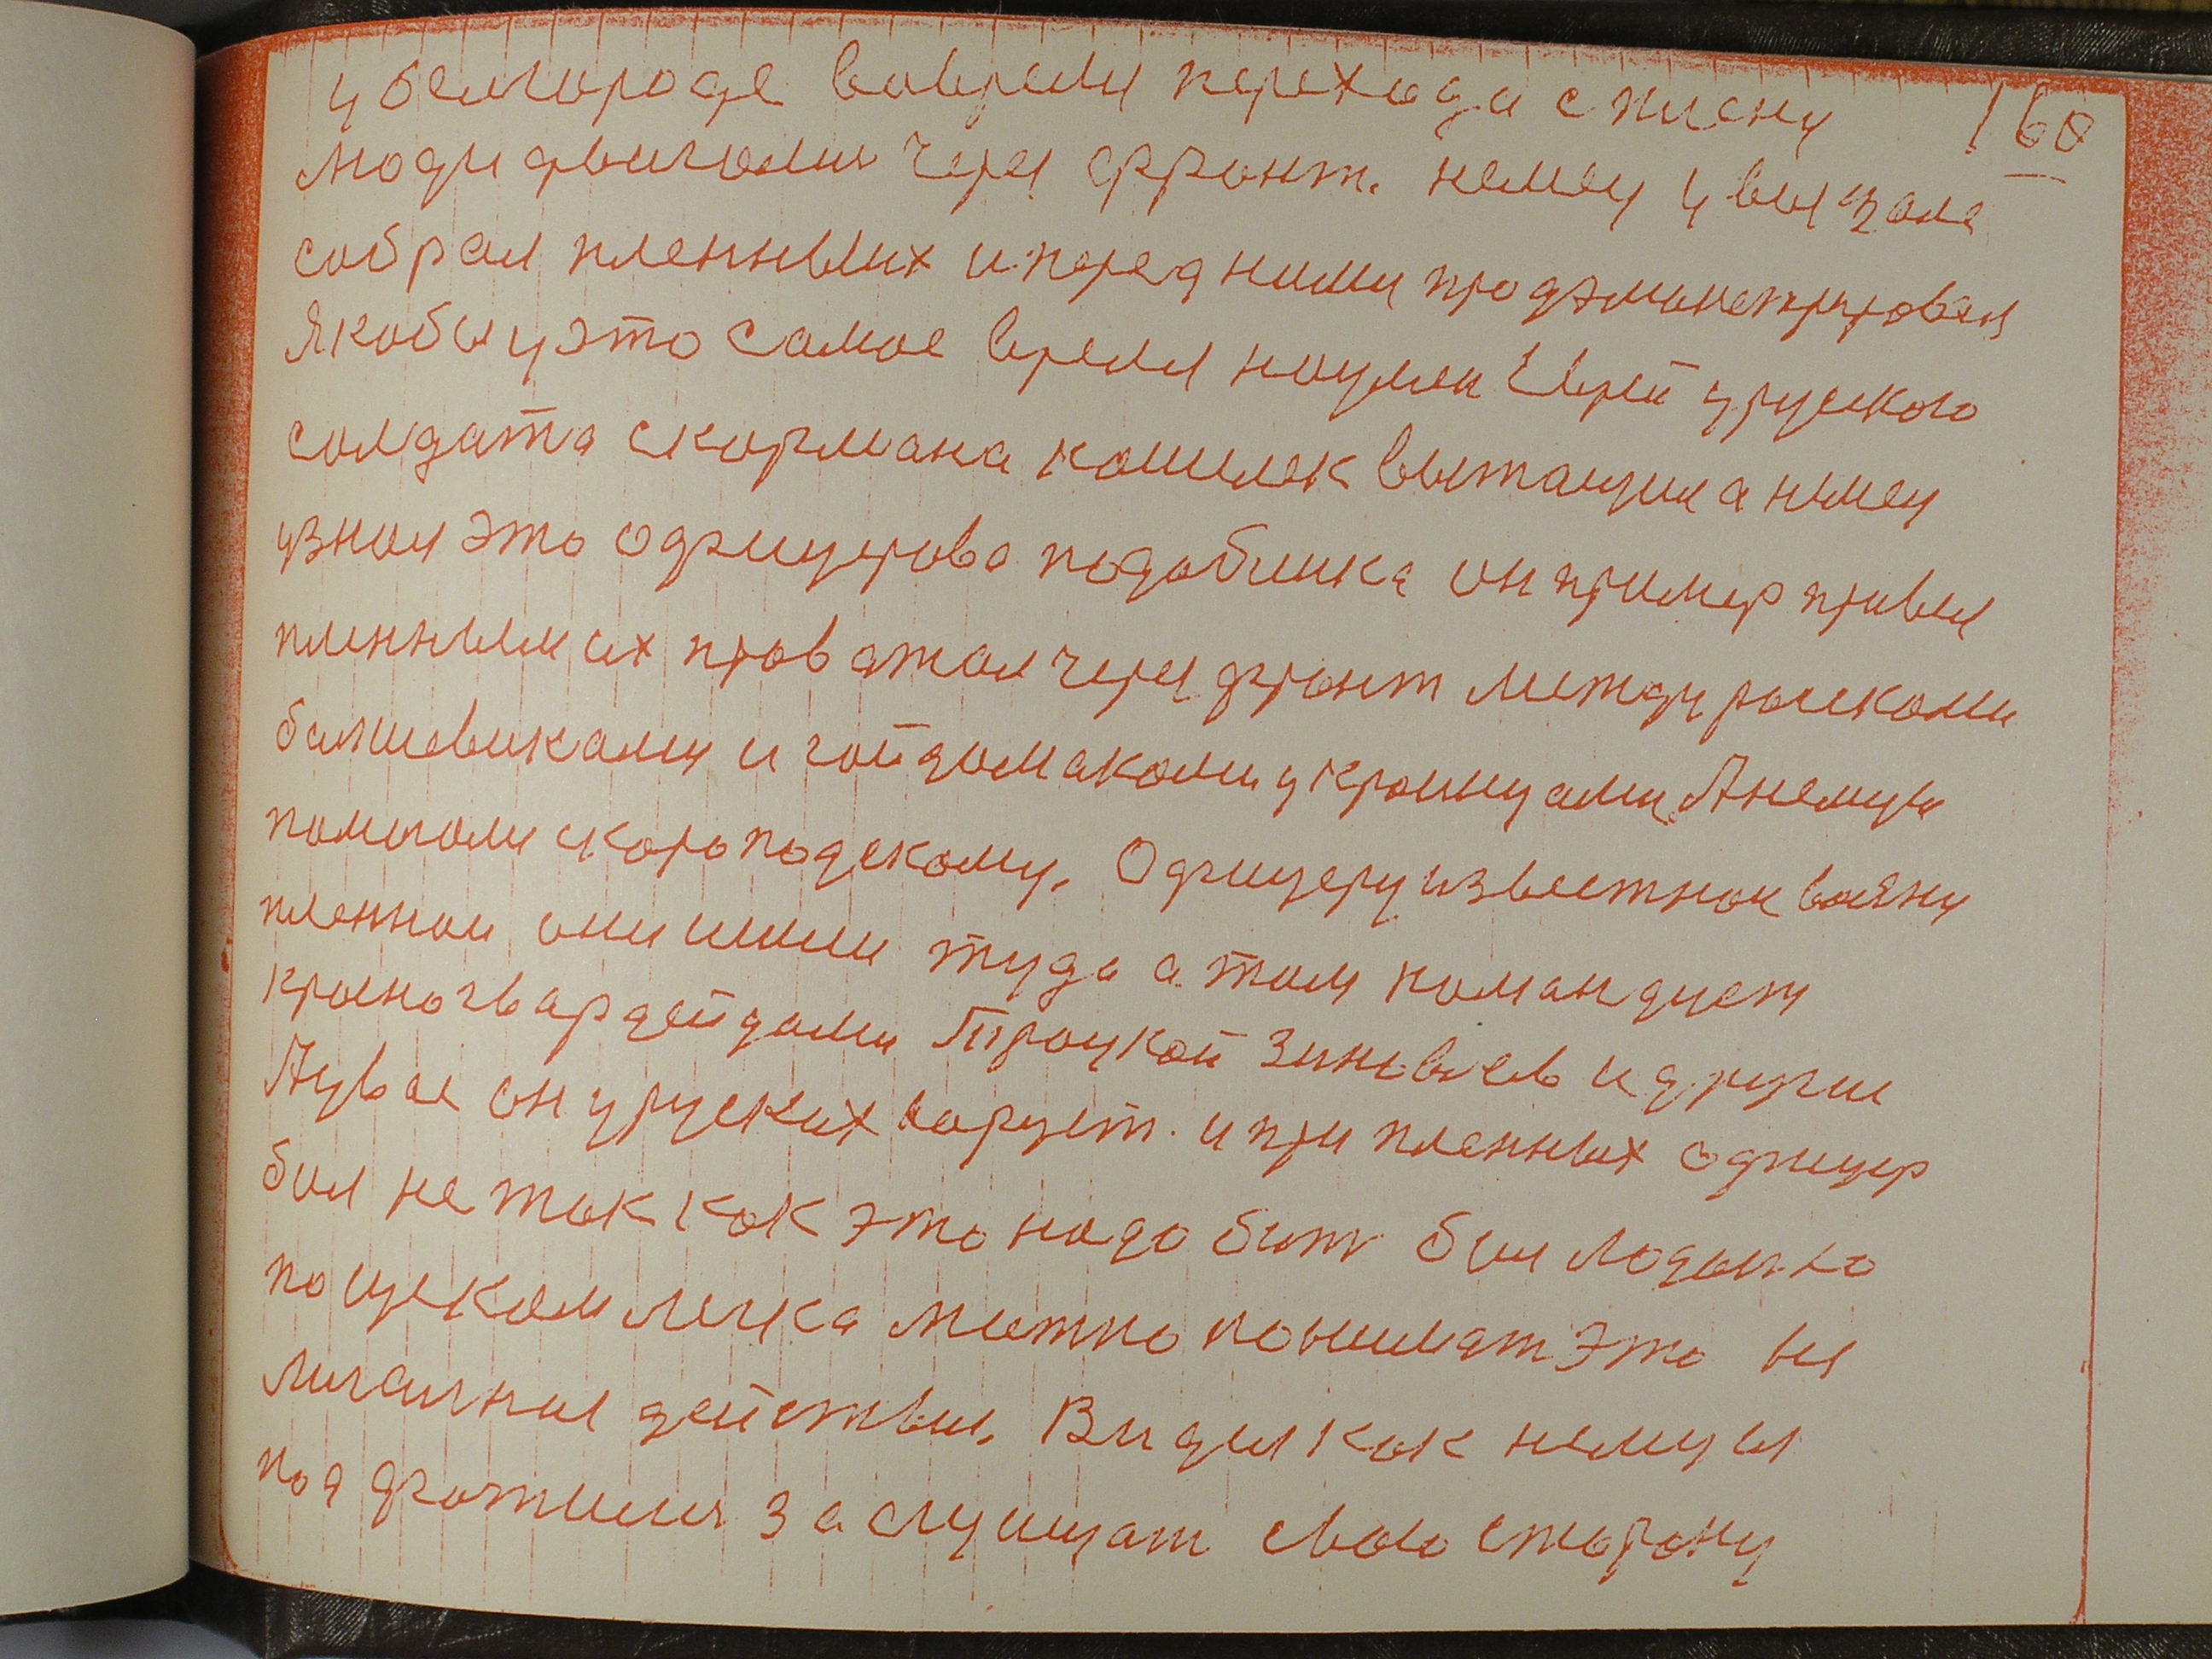 у белгороде вовремя перехода с плену 160
люди двигались через фронт. немец у вагзала
собрал пленныих и перед ними продэмонстрировал
Якобы у это самое время ноцмен Еврей у руского
солдата скормана кошилек вытащил а немец
узнал это офицерова подоблика он пример привел
пленным их проватал через фронт между рускими
большевиками и гойдомаками украинцами. А немцы
помогали скороподскому. Офицеру известнои воену
пленнои они шли туда а там командуеш
красногвардейцами Троцкой Зиновьев и други
Ацвое он у руских варует. и при пленных офицер
бил не так как это надо бить бил ладонью
по щекам легка можно понимат это не
лигальное действие. Видел как немцы
под дготились заслушат свою сторону